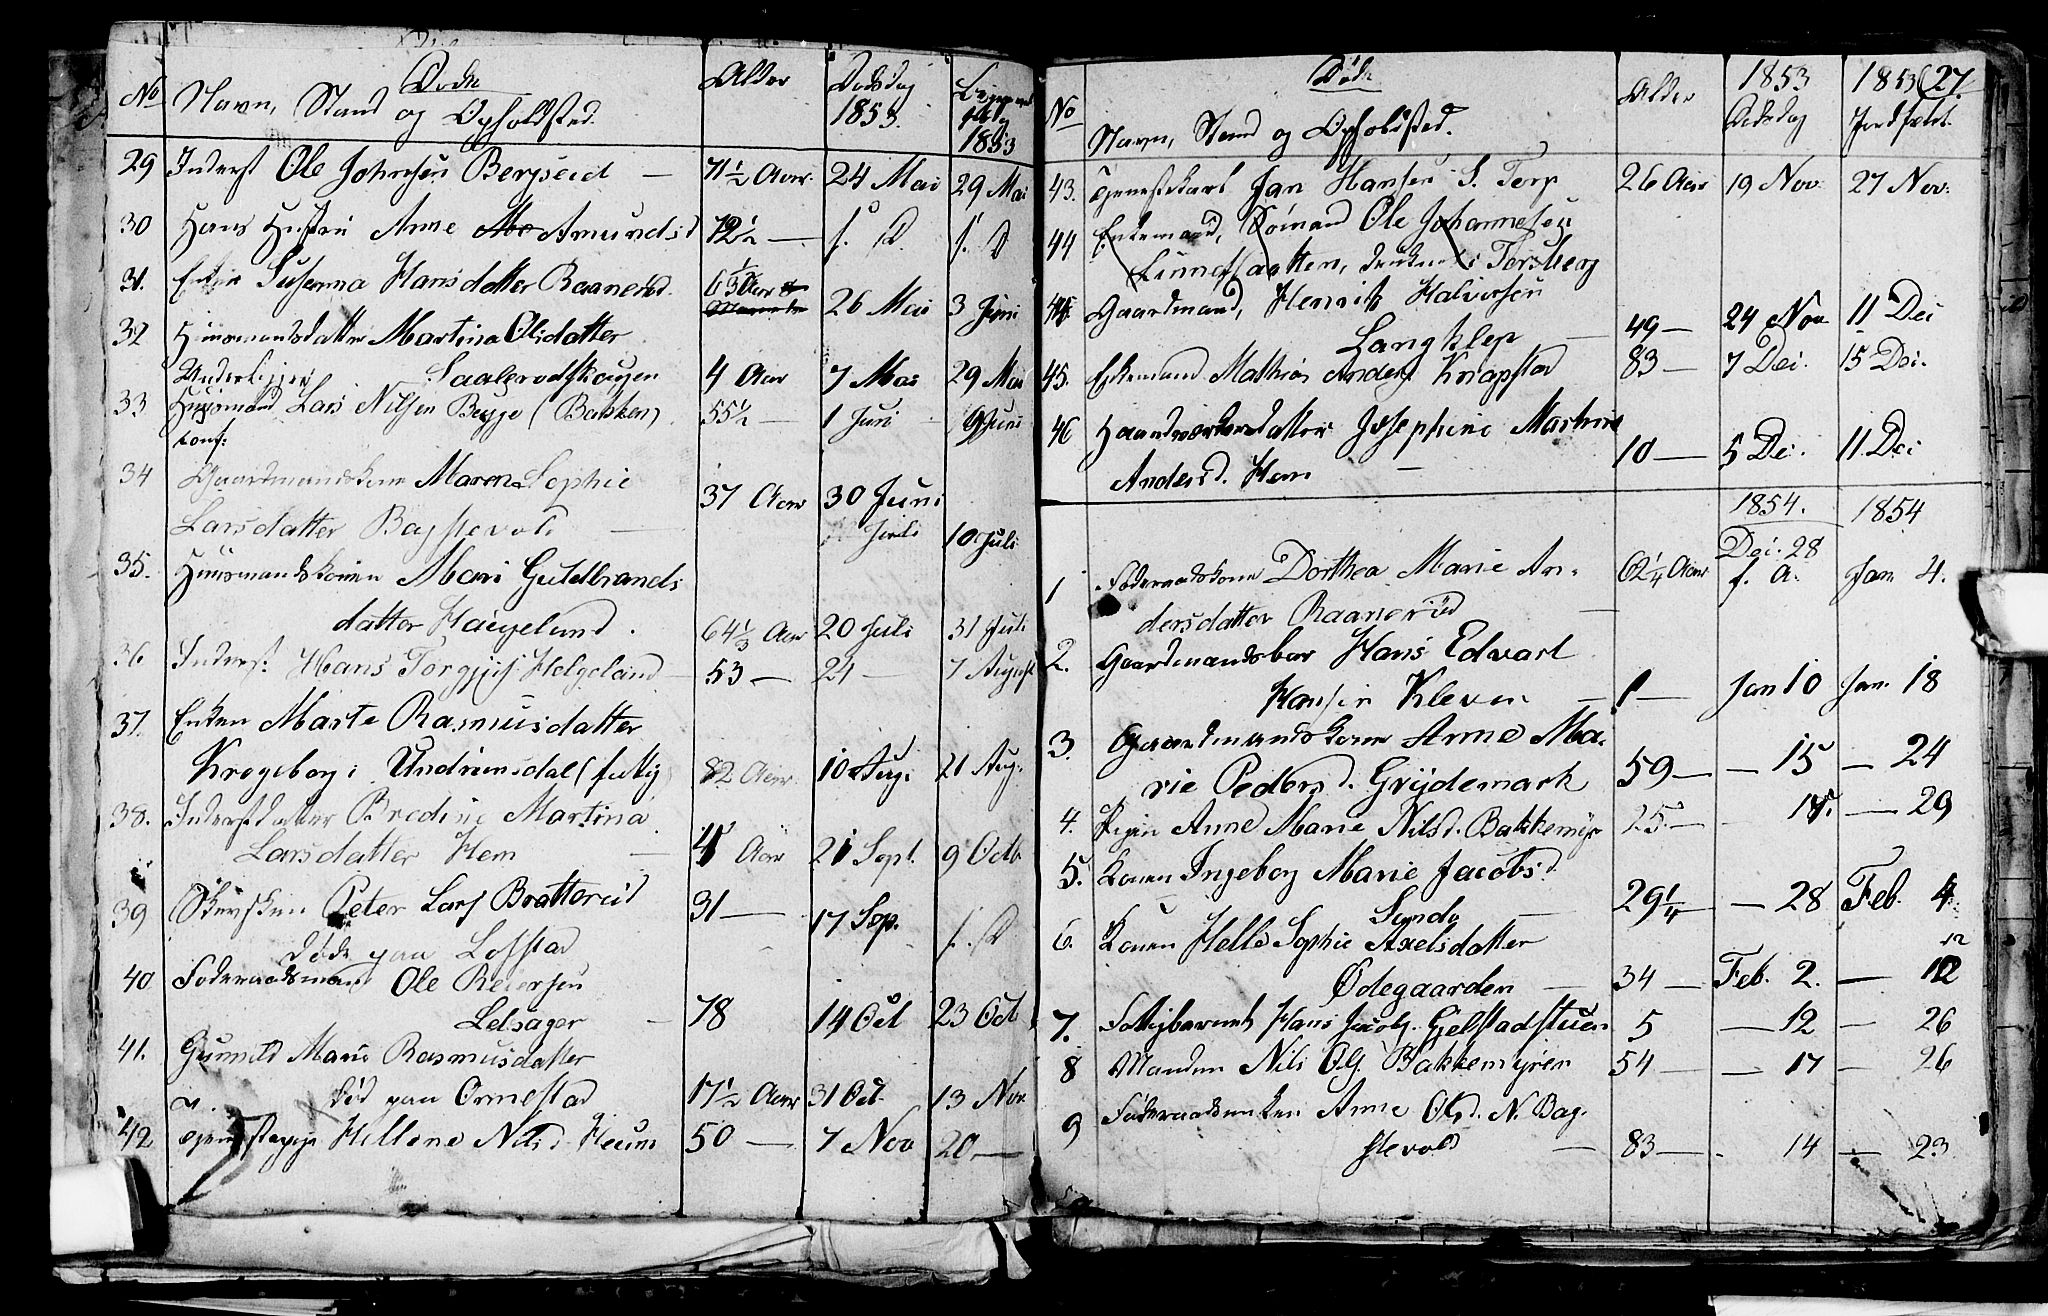 Døde
No Navn, Stand og Opholdsted. Alder Dødsdag 1853. 1853
29 Inderst Ole Johnsen Bergseid — 71 1/2 Aar. 24 Mai 29 Mai
30 Hans Hustru Anne Amundsd 72 1/2 — f. D. f. D
31. Enken Susanna Hansdatter Raanerød. 63 1/2 Aar 26 Mai 3 Juni
32 Huusmandsdatter Martina Olsdatter
Saalerødskougen 4 Aar 7 Mai 29 Mai
33 Huusmand Lars Nilsen Bergge (Bakken) 55 1/2 — 1 Juni 9 Juni
34 Gaardmandskone Maren Sophie
Larsdatter Baggevold — 37 Aar 30 Juni 10 Juli
35. Huusmandskonen Mari Gulelbrands
datter Haugelund. 64 1/3 Aar 20 Juli 31 Juli
36 Inderst Hans Torgjus. Helgeland — 53 — 24 — 7 August
37. Enken Marte Rasmusdatter
Krogeborg i Undrumsdal (fattig) 82 Aar. 10 Aug. 21 Aug.
38. Inderstdatter Bredine Martina
Larsdatter Hem — 4 Aar 21 Sept. 9 Octb
39 Peter Lars Brattereid 31 — 17 Sep. f. D
døde paa Lofstad
40 Føderaadsmand Ole Reiersen
Lelsager — 78 14 Oct 23 Oct
41. Gunnild Marie Rasmusdatter
død paa Ormestad 17 1/2 Aar 31 Oct. 13 Nov
42 Tjenestepige Hellene Nilsd. Heum 50 — 7 Nov 20 —
Døde
No Navn, Stand og Opholdsted. Alder 1853 Dødsdag 1853 Jordfæst. 27.
43. Tjenestekarl Jan Hansen S. Torp 26 Aar 19 Nov. 27 Nov.
44 Enkemand, Sømand Ole Johannesen
Linnesløkken, druknet i Tønsberg
Gaardmand, Henrik Halvorsen
Langklep — 49 — 24 Nov 11 Dec
45. Enkemand Mathias Anders. Knapstad 83 — 7 Dec. 15 Dec.
46 Haandværkerdatter Josephine Martine
Andersd. Hem — 10 — 5 Dec. 11 Dec
1854. 1854
1 Føderaadskone Dorthea Marie An-
dersdatter Raanerød — 62 1/4 Aar Dec. 28 f. A. Jan. 4.
2. Gaardmandsbarn Hans Edvart
Hansen Kleven — 1 — Jan 10 Jan. 18
3. Gaardmandskone Anne Ma-
rie Pedersd. Grydemark 59 — — 15 — 24
4. Pigen Anne Marie Nilsd. Bakkemyr 25 — 18. — 29
5. Konen Ingeborg Marie Jacobsd.
Sundø — 29 1/4 — — 28 Feb. 4
6. Konen Helle Sophie Axelsdatter
Ødegaarden — 34 — Feb. 2. — 12
7. Fattigbarnet Hans Jacobs. Gjelstadstuen 5 — 12 — 26
8 Manden Nils Ols. Bakkemyren 54 — — 17 — 26
9 Føderaadsenken Anne Olsd. N. Bag-
gevold — 83 — 14 — 23